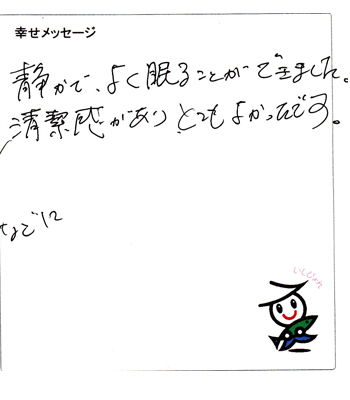 幸せメッセージ
静かで、よく眠ることができました。
清潔感がありとてもよかったです。
などに